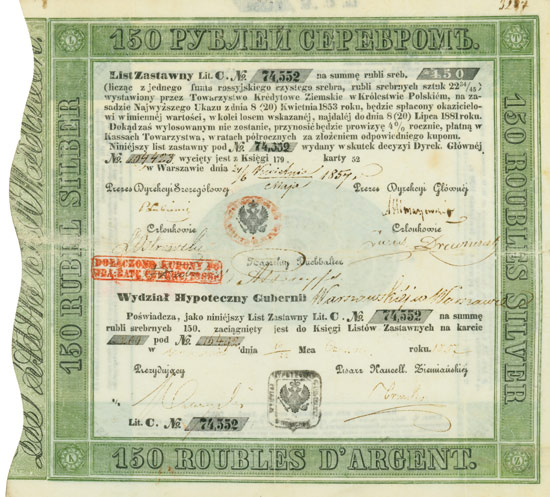 150 РУБЛЕЙ СЕРЕБРОМЪ.
List Zastawny Lit. C. № 74,552 na summę rubli sreb. 150
(licząc z jednego funta rossyjskiego czystego srebra, rubli srebrnych sztuk 22
wystawiony przez Towarzystwo Kredytowe Ziemskie w Królestwie Polskiém, na za-
sadzie Najwyższego Ukazu z dnia 8 (20) Kwietnia 1853 roku, będzie spłacony okazicielo-
wi w imiennéj wartości, w kolei losem wskazanéj, najdaléj do dnia 8 (20) Lipca 1881 roku.
Dokąd zaś wylosowanym nie zostanie, przynosić będzie prowizyę 4% rocznie, płatną w
Kassach Towarzystwa, w ratach półrocznych za złożeniem odpowiednich kuponu.
Niniejszy list zastawny pod № 74,552 wydany w skutek decyzyi Dyrek. Głównéj
№ 104423 wycięty jest z Księgi 179 karty 52
w Warszawie dnia Kwietnia 1857 r.
Maja
Prezes Dyrekcyi Szczegółowéj Prezes Dyrekcyi Głównéj
Członkowie Członkowie
DOŁĄCZONO KUPONY PO
Naczelny Buchhalter
Wydział Hypoteczny Gubernii Warszawskiéj w Warszawie
Poświadcza, jako niniéjszy List Zastawny Lit. C. № 74,552 na summę
rubli srebrnych 150. zaciągnięty jest do Księgi Listów Zastawnych na karcie
pod № dnia Mca roku.
Prezydujący Pisarz Kancell. Ziemiańskiéj
Lit. C. № 74,552
150 ROUBLES D'ARGENT.
150 RUBEL SILBER
150 ROUBLES SILVER